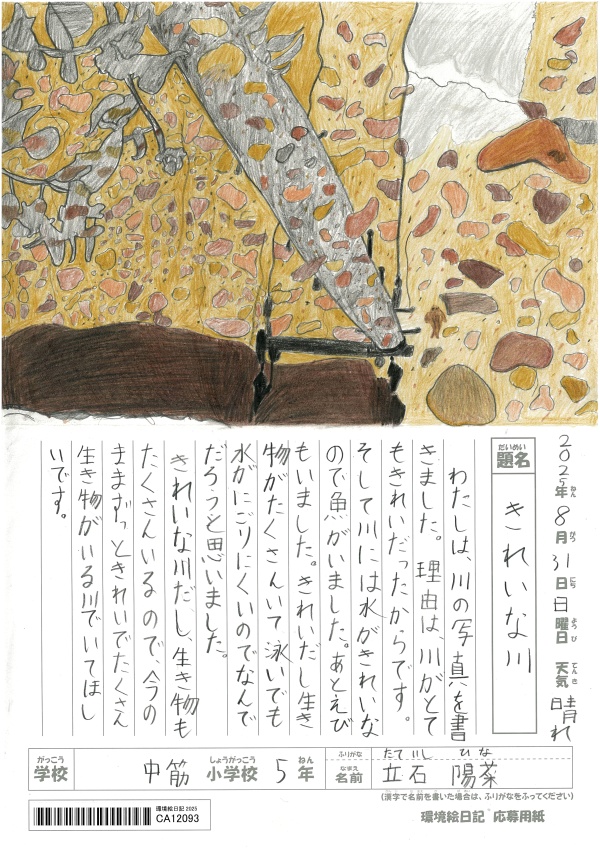 2025年ねん 8月がつ 31日にち 日曜日ようび 天気てんき 晴れ
題名だいめい きれいな川
わたしは、川の写真を書
きました。理由は、川がとて
もきれいだったからです。
そして川には水がきれいな
ので魚がいました。あとえび
もいました。きれいだし生き
物がたくさんいて泳いでも
水がにごりにくいのでなんで
だろうと思いました。
きれいな川だし、生き物も
たくさんいるので、今の
ままずっときれいでたくさん
生き物がいる川でいてほし
いです。
学校がっこう 中筋 小学校しょうがっこう 5年ねん
ふりがな たていし ひな
名前なまえ 立石 陽菜
(漢字で名前を書いた場合は、ふりがなをふってください)
環境絵日記 2025
CA12093
環境絵日記 応募用紙